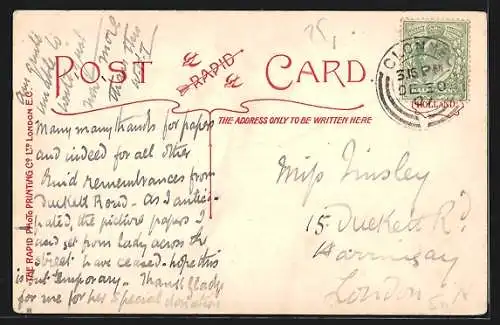 POST CARD
RAPID
THE ADDRESS ONLY TO BE WRITTEN HERE
(HOLLAND.)
CLONMEL
3.15 PM
DE 30
THE RAPID PHOTO PRINTING CO LTD LONDON E.C.
Many many thanks for papers
and indeed for all other
kind remembrances from
Duckett Road - As I antici-
pated, the picture papers I
and get from lady across the
street have ceased - hope this
is but temporary. Thank Gladys
for me for her special donation
Am quite
unable to
more
than this
Miss Tinsley
15 Duckett Rd
Harringay
London